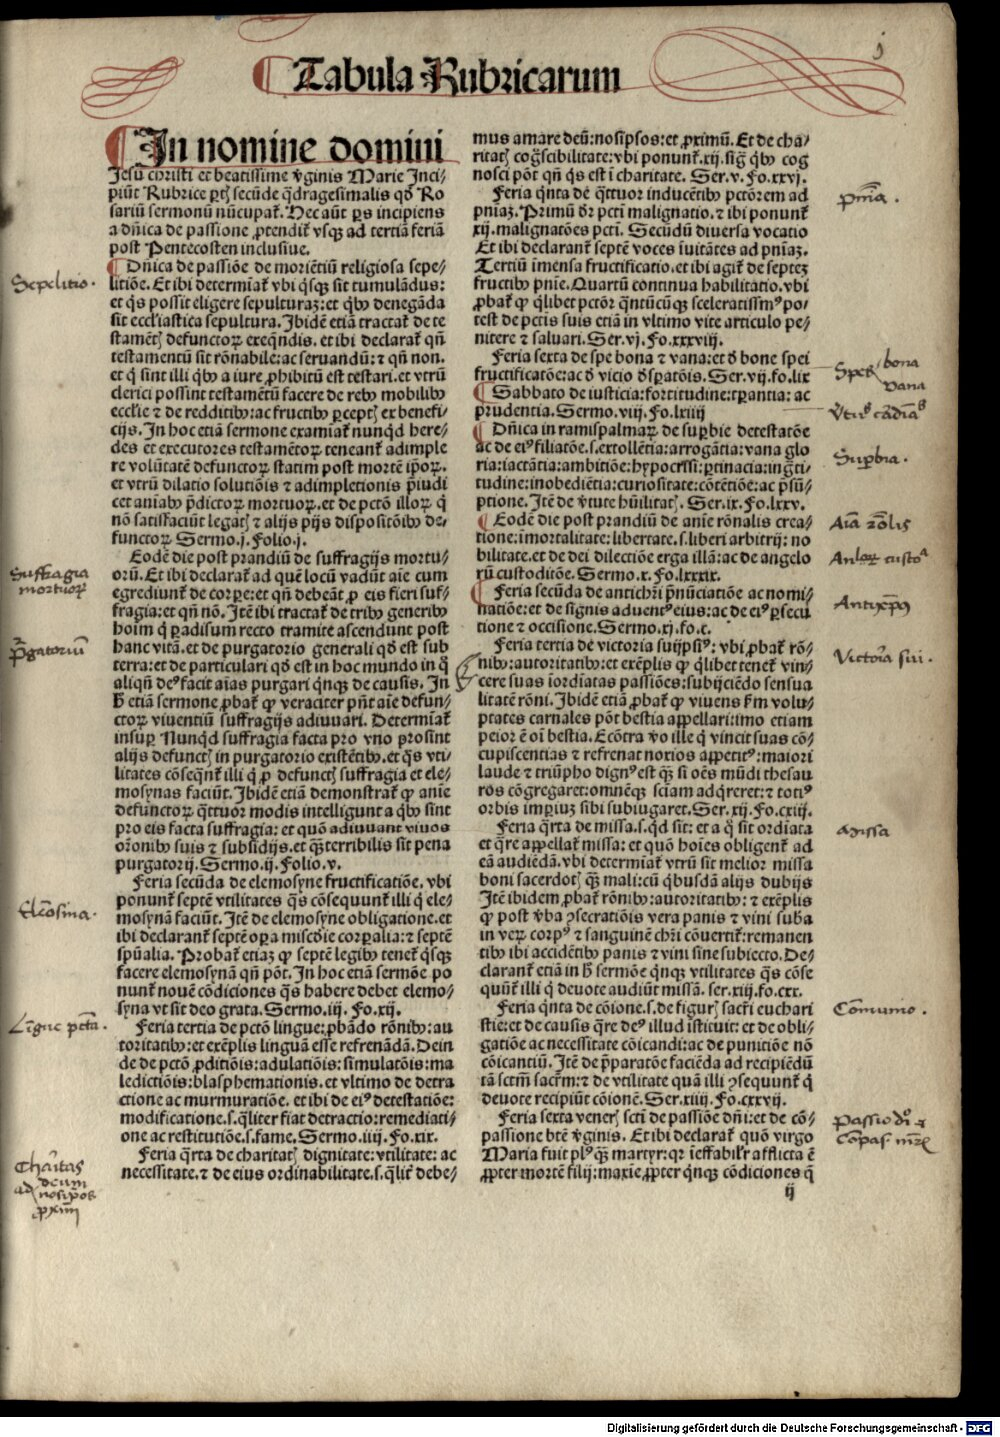 Tabula Rubricarum
j
In nomine domini
Jesu christi et beatissime v̄ginis Marie Inci-
piūt Rubrice ꝑtꝭ secūde q̄dragesimalis qd̓ Ro
sariū sermonū nūcupat᷑. Hec aūt ꝑs incipiens
a dn̄ica de passione ꝓtendit᷑ vsqꝫ ad tertiā feriā
post Pentecosten inclusiue.
¶ Dn̄ica de passiōe de moriētiū religiosa sepe-
litiōe. Et ibi determiat᷑ vbi qͥsqꝫ sit tumulādus:
et qͥs possit eligere sepulturaꝫ: et qͥbꝰ denegāda
sit eccl̓iastica sepultura. Ibidē etiā tractat᷑ de te
stamētꝭ defunctoꝝ exeqn̄dis. et ibi declarat᷑ qn̄
testamentū sit rōnabile: ac seruandū: ⁊ qn̄ non.
et qͥ sint illi qͥbꝰ a iure ꝓhibitū est testari. et vtrū
clerici possint testamētū facere de rebꝰ mobilibꝰ
eccl̓ie ⁊ de redditibꝰ: ac fructibꝰ ꝑceptꝭ ex benefi-
cijs. In hoc etiā sermone examīat᷑ nunqͥd here-
des et executores testamētoꝝ teneant᷑ adimple
re volūtatē defunctoꝝ statim post mortē ip̄oꝝ.
et vtrū dilatio solutiōis ⁊ adimpletionis p̄iudi
cet aniabꝰ p̄dictoꝝ mortuoꝝ. et de pctō illoꝝ qͥ
nō satisfaciūt legatꝭ ⁊ alijs pijs dispositōibꝰ de-
functoꝝ Sermo. j. Folio. j.
Eodē die post prandiū de suffragijs mortu-
orū. Et ibi declarat᷑ ad quē locū vadūt aīe cum
egrediunt᷑ de corꝑe: et qn̄ debeāt ꝓ eis fieri suf-
fragia: et qn̄ nō. Itē ibi tractat᷑ de tribꝰ generibꝰ
hoīm qͥ ꝑadisum recto tramite ascendunt post
hanc vitā. et de purgatorio generali qd̓ est sub
terra: et de particulari qd̓ est in hoc mundo in q̊
aliqn̄ deꝰ facit aīas purgari qͥnqꝫ de causis. In
h̓ etiā sermone ꝓbat᷑ ꝙ veraciter pn̄t aīe defun-
ctoꝝ viuentiū suffragijs adiuuari. Determīat᷑
insuꝑ Nunqͥd suffragia facta pro vno prosint
alijs defunctꝭ in purgatorio existētibꝰ. et qͣs vti-
litates cōseqn̄t᷑ illi qͥ ꝓ defunctꝭ suffragia et ele-
mosynas faciūt. Ibidē etiā demonstrat᷑ ꝙ anie
defunctoꝝ qͣttuor modis intelligunt a qͥbꝰ sint
pro eis facta suffragia: et quō adiuuant viuos
orōnibꝰ suis ⁊ subsidijs. et qꝫ terribilis sit pena
purgatorij. Sermo. ij. Folio. v.
Feria secūda de elemosyne fructificatiōe. vbi
ponunt᷑ septē vtilitates qͣs cōsequunt᷑ illi qͥ ele-
mosynā faciūt. Itē de elemosyne obligatione. et
ibi declarant᷑ septē oꝑa mīscd̓ie corꝑalia: ⁊ septē
spūalia. Probat᷑ etiaꝫ ꝙ septē legibꝰ tenet᷑ qͥsqꝫ
facere elemosynā qn̄ pōt. In hoc etiā sermōe po
nunt᷑ nouē cōdiciones qͣs habere debet elemo-
syna vt sit deo grata. Sermo. iij. Fo. xij.
Feria tertia de pctō lingue: ꝓbādo rōnibꝰ: au
toritatibꝰ: et exēplis linguā esse refrenādā. Dein
de de pctō ꝓditiōis: adulatiōis: simulatōis: ma
ledictiōis: blasphemationis. et vltimo de detra
ctione ac murmuratiōe. et ibi de eiꝰ detestatiōe:
modificatione. s. qͣliter fiat detractio: remediati-
one ac restitutiōe. s. fame. Sermo. iiij. Fo. xix.
Feria qͣrta de charitatꝭ dignitate: vtilitate: ac
necessitate. ⁊ de eius ordinabilitate. s. qͣlit᷑ debe-
mus amare deū: nosip̄sos: et ꝓximū. Et de cha-
ritatꝭ cog̓scibilitate: vbi ponunt᷑. xij. sig̓ qͥbꝰ cog
nosci pōt qn̄ qͥs est ī charitate. Ser. v. Fo. xxvj.
Feria qͥnta de qͣttuor inducētibꝰ pctōrem ad
pniaꝫ. Primū dr̄ pcti malignatio. ⁊ ibi ponunt᷑
xij. malignatōes pcti. Secūdū diuersa vocatio
Et ibi declarant᷑ septē voces īuitātes ad pn̄iaꝫ.
Tertiū īmensa fructificatio. et ibi agit᷑ de septeꝫ
fructibꝰ pnīe. Quartū continua habilitatio. vbi
ꝓbat᷑ ꝙ qͥlibet pctōr qͣntūcūqꝫ sceleratissimꝰ po-
test de pctis suis etiā in vltimo vite articulo pe-
nitere ⁊ saluari. Ser. vj. Fo. xxxviij.
Feria sexta de spe bona ⁊ vana: et d̓ bone spei
fructificatōe: ac d̓ vicio d̓sꝑatōis. Ser. vij. fo. lix
¶ Sabbato de iusticia: fortitudine: tꝑantia: ac
prudentia. Sermo. viij. Fo. lxiiij
¶ Dn̄ica in ramispalmaꝝ de suꝑbie detestatōe
ac de eiꝰ filiatōe. s. extollētia: arrogātia: vana glo
ria: iactātia: ambitiōe: hypocrisi: ꝑtinacia: ingͣti-
tudine: inobediētia: curiositate: cōtētiōe: ac p̄sū-
ptione. Itē de v̓tute hūilitatꝭ. Ser. ix. Fo. lxxv.
¶ Eodē die post prandiū de anīe rōnalis crea-
tione: īmortalitate: libertate. s. liberi arbitrij: no
bilitate. et de dei dilectiōe erga illā: ac de angelo
rū custoditōe. Sermo. x. Fo. lxxxix.
¶ Feria secūda de antichrī p̄nūciatiōe ac nomi-
natiōe: et de signis aduentꝰ eius: ac de eiꝰ ꝑsecu
tione ⁊ occisione. Sermo. xj. fo. c.
Feria tertia de victoria suijpsiꝰ: vbi ꝓbat᷑ rō-
nibꝰ: autoritatibꝰ: et exēplis ꝙ qͥlibet tenet᷑ vin-
cere suas īordīatas passiōes: subijciēdo sensua
litatē rōni. Ibidē etiā ꝓbat᷑ ꝙ viuens s̓m volu-
ptates carnales pōt bestia appellari: imo etiam
peior ē oī bestia. Ecōtra v̓o ille qͥ vincit suas cō-
cupiscentias ⁊ refrenat noxios appetitꝰ: maiori
laude ⁊ triūpho dignꝰ est qꝫ si oēs mūdi thesau
ros cōgregaret: omnēqꝫ sciam adqͥreret: ⁊ totiꝰ
orbis imꝑiuꝫ sibi subiugaret. Ser. xij. Fo. cxiij.
Feria qͣrta de missa. s. qͥd sit: et a q̊ sit ordīata
et qͣre appellat᷑ missa: et quō hoīes obligent᷑ ad
eā audiēdā. vbi determiat᷑ vtrū sit melior missa
boni sacerdotꝭ qꝫ mali: cū qͥbusdā alijs dubijs
Itē ibidem ꝓbat᷑ rōnibꝰ: autoritatibꝰ: ⁊ exēplis
ꝙ post v̓ba ꝯsecratiōis vera panis ⁊ vini sub̄a
in veꝝ corpꝰ ⁊ sanguinē chrī cōuertit᷑: remanen
tibꝰ ibi accidētibꝰ panis ⁊ vini sine subiecto. De-
clarant᷑ etiā in h̓ sermōe qͥnqꝫ vtilitates qͣs cōse
quūt᷑ illi qͥ deuote audiūt missā. ser. xiij. fo. cxx.
Feria qͥnta de cōione. s. de figurꝭ sacrī euchari
stie: et de causis qͣre deꝰ illud īstituit: et de obli-
gatiōe ac necessitate cōicandi: ac de punitiōe nō
cōicantiū. Itē de p̄paratōe faciēda ad recipiēdū
tā sctm̄: sacrm̄: ⁊ de vtilitate quā illi ꝯsequunt᷑ qͥ
deuote recipiūt cōionē. Ser. xiiij. Fo. cxxvij.
Feria sexta venerꝭ sctī de passiōe dn̄i: et de cō-
passione btē v̓ginis. Et ibi declarat᷑ quō virgo
Maria fuit plꝰqꝫ martyr: qꝛ ieffabilr̄ afflicta ē
ꝓpter mortē filij: maxīe ꝓpter qͥnqꝫ cōdiciones qͥ
ij
Sepelitio.
Suffragia
mortuoꝝ
Pͬgatoriū
Elēosina.
Līgue pctā.
Charitas
deum
ad nosip̄os
ꝓximū
pn̄ia.
Spes bona
vana
v̓tꝰ cardiāꝭ
Suꝑbia.
Aīa rōlis
Anloꝝ custoᵃ
Antixp̄os
Victoria sui.
Missa
Cōmunio.
Passio dī ⁊
Cōpas mr̄ꝭ
Digitalisierung gefördert durch die Deutsche Forschungsgemeinschaft - DFG